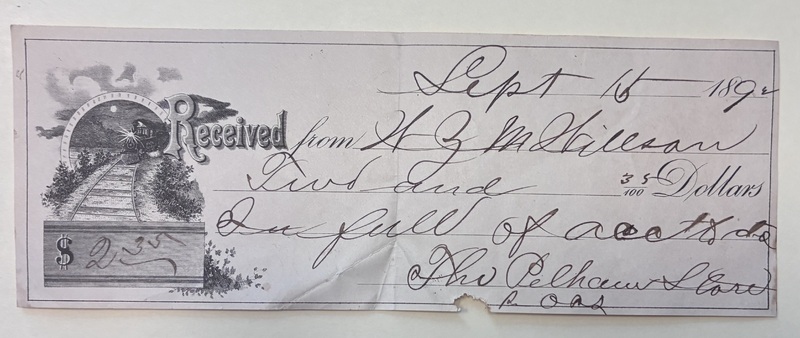 Sept 16 1892
Received from H Z M Hillson
Two and 35/100 Dollars
In full of acct to date
$ 2.35
The Pelham Store